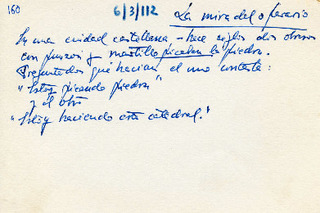 160
6/3/112
La mira del operario
En una ciudad castellana - hace siglos dos obreros
con punzon y martillo picaban la piedra.
Preguntados qué hacían el uno contesta:
"Estoy picando piedra"
y el otro
"Estoy haciendo esta catedral."